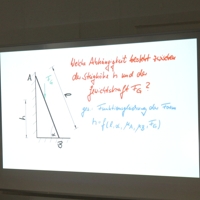 Welche Abhängigkeit besteht zwischen
der Steighöhe h und der
Gewichtskraft F_G?
ges: Funktionsgleichung der Form
h = f(l, α, μ_A, μ_B, F_G)
A
h
l
α
B